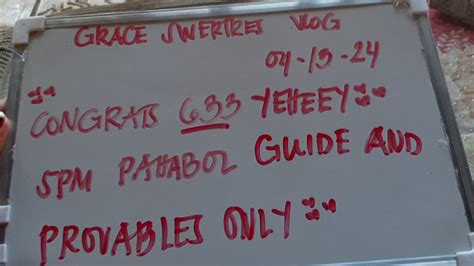 GRACE SWERTRES VLOG
04-13-24
CONGRATS 633 YEHEEY
5PM PAHABOL GUIDE AND
PROVABLES ONLY